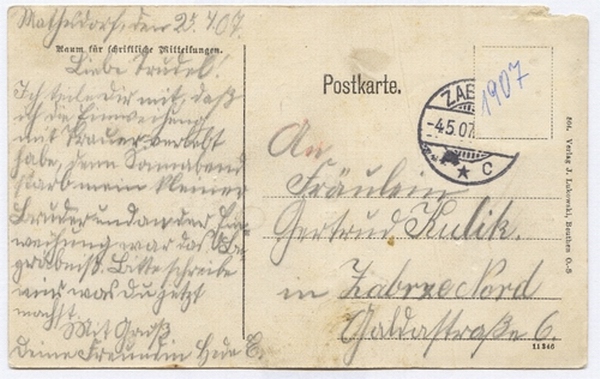 Mathesdorf, den 2. 5. 07.
Raum für schriftliche Mitteilungen.
Liebe Trudel!
Ich teile Dir mit, daß
ich die Einweihung
mit Trauer verlebt
habe, denn Sonnabend
starb mein kleiner
Bruder und an der Ein-
weihung war das Be-
gräbniß. Bitte schreibe
mir was du jetzt
machst.
Mit Gruß
deine Freundin
Postkarte.
ZAB
-4.5.07.
C
1907
An
Fräulein
Gertrud Kulik.
in Zabrze Nord
Galdastraße 6.
Verlag J. Lukowski, Beuthen O.-S
11346